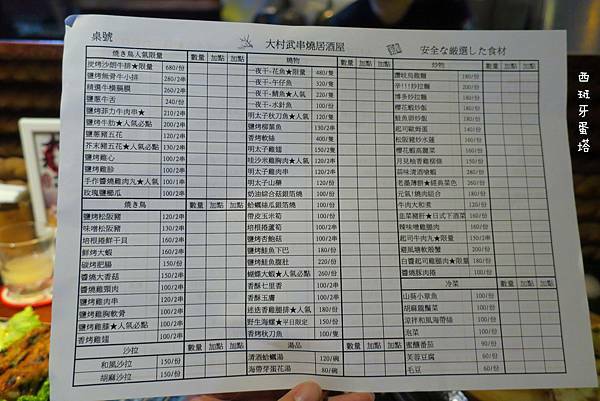 桌號
大村武串燒居酒屋
安全な厳選した食材
西班牙蛋塔
燒き鳥人氣限量 數量 加點 加點
炭烤沙朗牛排★限量 680/份
鹽烤無骨牛小排 280/2串
精選牛橫膈膜 260/2串
鹽蔥牛舌 240/份
鹽烤菲力牛肉串★ 210/2串
鹽烤牛肋★人氣必點 200/2串
鹽蔥豬五花 120/2串
芥末豬五花★人氣 130/2串
鹽烤雞心 100/2串
鹽烤雞胗 100/2串
手作醬燒雞肉丸★人氣 100/1串
玫瑰鹽櫛瓜 100/2串
燒き鳥 數量 加點 加點
鹽烤松阪豬 120/2串
味噌松阪豬 130/2串
培根捲鮮干貝 160/2串
鮮烤大蝦 160/2串
碳烤肥腸 150/份
醬燒大香菇 150/2串
醬燒雞頸肉 100/2串
鹽烤雞肉串 120/2串
鹽烤雞胸軟骨 100/2串
鹽烤雞腿★人氣必點 100/2串
香烤雞翅 150/2串
沙拉 數量 加點 加點
和風沙拉 150/份
胡麻沙拉 150/份
燒物 數量 加點 加點
一夜干-花魚★限量 480/隻
一夜干-午仔魚 320/隻
一夜干-鯖魚★人氣 220/隻
一夜干-水針魚 100/份
明太子秋刀魚★人氣 120/隻
鹽烤柳葉魚 130/2串
香烤軟絲 400/隻
明太子雞翅 150/2隻
哇沙米雞胸肉★人氣 120/2串
明太子雞肉串 120/2串
明太子山藥 120/份
奶油綜合菇銀箔燒 100/份
蛤蠣絲瓜銀箔燒 100/份
帶皮玉米筍 100/份
培根捲蘆筍 100/2串
鹽烤杏鮑菇 100/2串
鹽烤鮭魚下巴 180/份
鹽烤鮭魚腹肚 220/份
蝴蝶大蝦★人氣必點 260/份
香酥七里香 100/2串
香酥玉膚 100/2串
迷迭香雞腿排★人氣 180/份
野生海螺★平日限定 150/份
香烤秋刀魚 100/隻
湯品 數量 加點 加點
清酒蛤蠣湯 120/碗
海帶芽蛋花湯 80/碗
炒物 數量 加點 加點
讚岐烏龍麵 180/份
辛!!!炒拉麵 200/份
博多炒拉麵 180/份
櫻花蝦炒飯 180/份
鮭魚卵炒飯 180/份
起司歐姆蛋 140/份
松阪豬炒水蓮 160/份
櫻花蝦高麗菜 160/份
月見柚香雞柳條 150/份
蒜味清酒嗆蝦 280/份
老墨薄餅★經典菜色 260/份
元氣!燒肉組合 180/份
牛肉大和煮 120/份
韭菜豬肝★日式下酒菜 160/份
辣味噌雞腿肉 160/份
起司牛肉丸★限量 150/2串
避風塘軟殼蟹 200/份
白醬起司雞腿★限量 200/份
醬燒豚肉捲 160/份
冷菜
山葵小章魚 100/份
胡麻龍鬚菜 100/份
涼拌和風海帶絲 100/份
泡菜 100/份
蜜釀番茄 90/份
芙蓉豆腐 60/份
毛豆 60/份